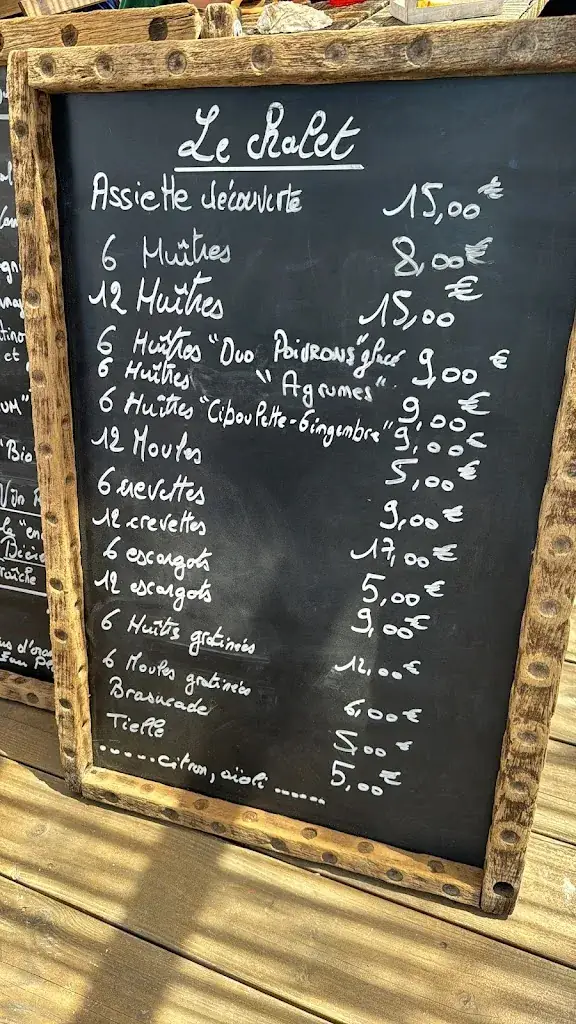 Le Chalet
Assiette découverte 15,00€
6 Huîtres 8,00€
12 Huîtres 15,00€
6 Huîtres "Duo POIVRONS" 9,00€
6 Huîtres "Agrumes" 9,00€
6 Huîtres "Ciboulette-Gingembre" 9,00€
12 Moules 5,00€
6 crevettes 9,00€
12 crevettes 17,00€
6 escargots 5,00€
12 escargots 9,00€
6 Huîtres gratinées 12,00€
6 Moules gratinées 6,00€
Brasucade 5,00€
Tielle 5,00€
......citron, aïoli ......
et
UM"
"Bio